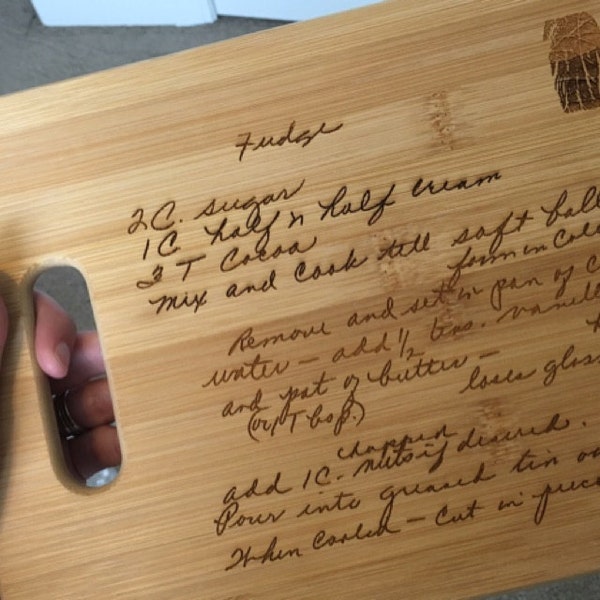 Fudge
2 C. sugar
1 C. half n half cream
3 T Cocoa
mix and cook till soft ball
form in
Remove and set in pan of
water - add 1/2 tea. vanill
and pat of butter -
(or 1 T 
loses glos
chopped
add 1 C. nuts if desired.
Pour into greased tin
When cooled - cut in piec